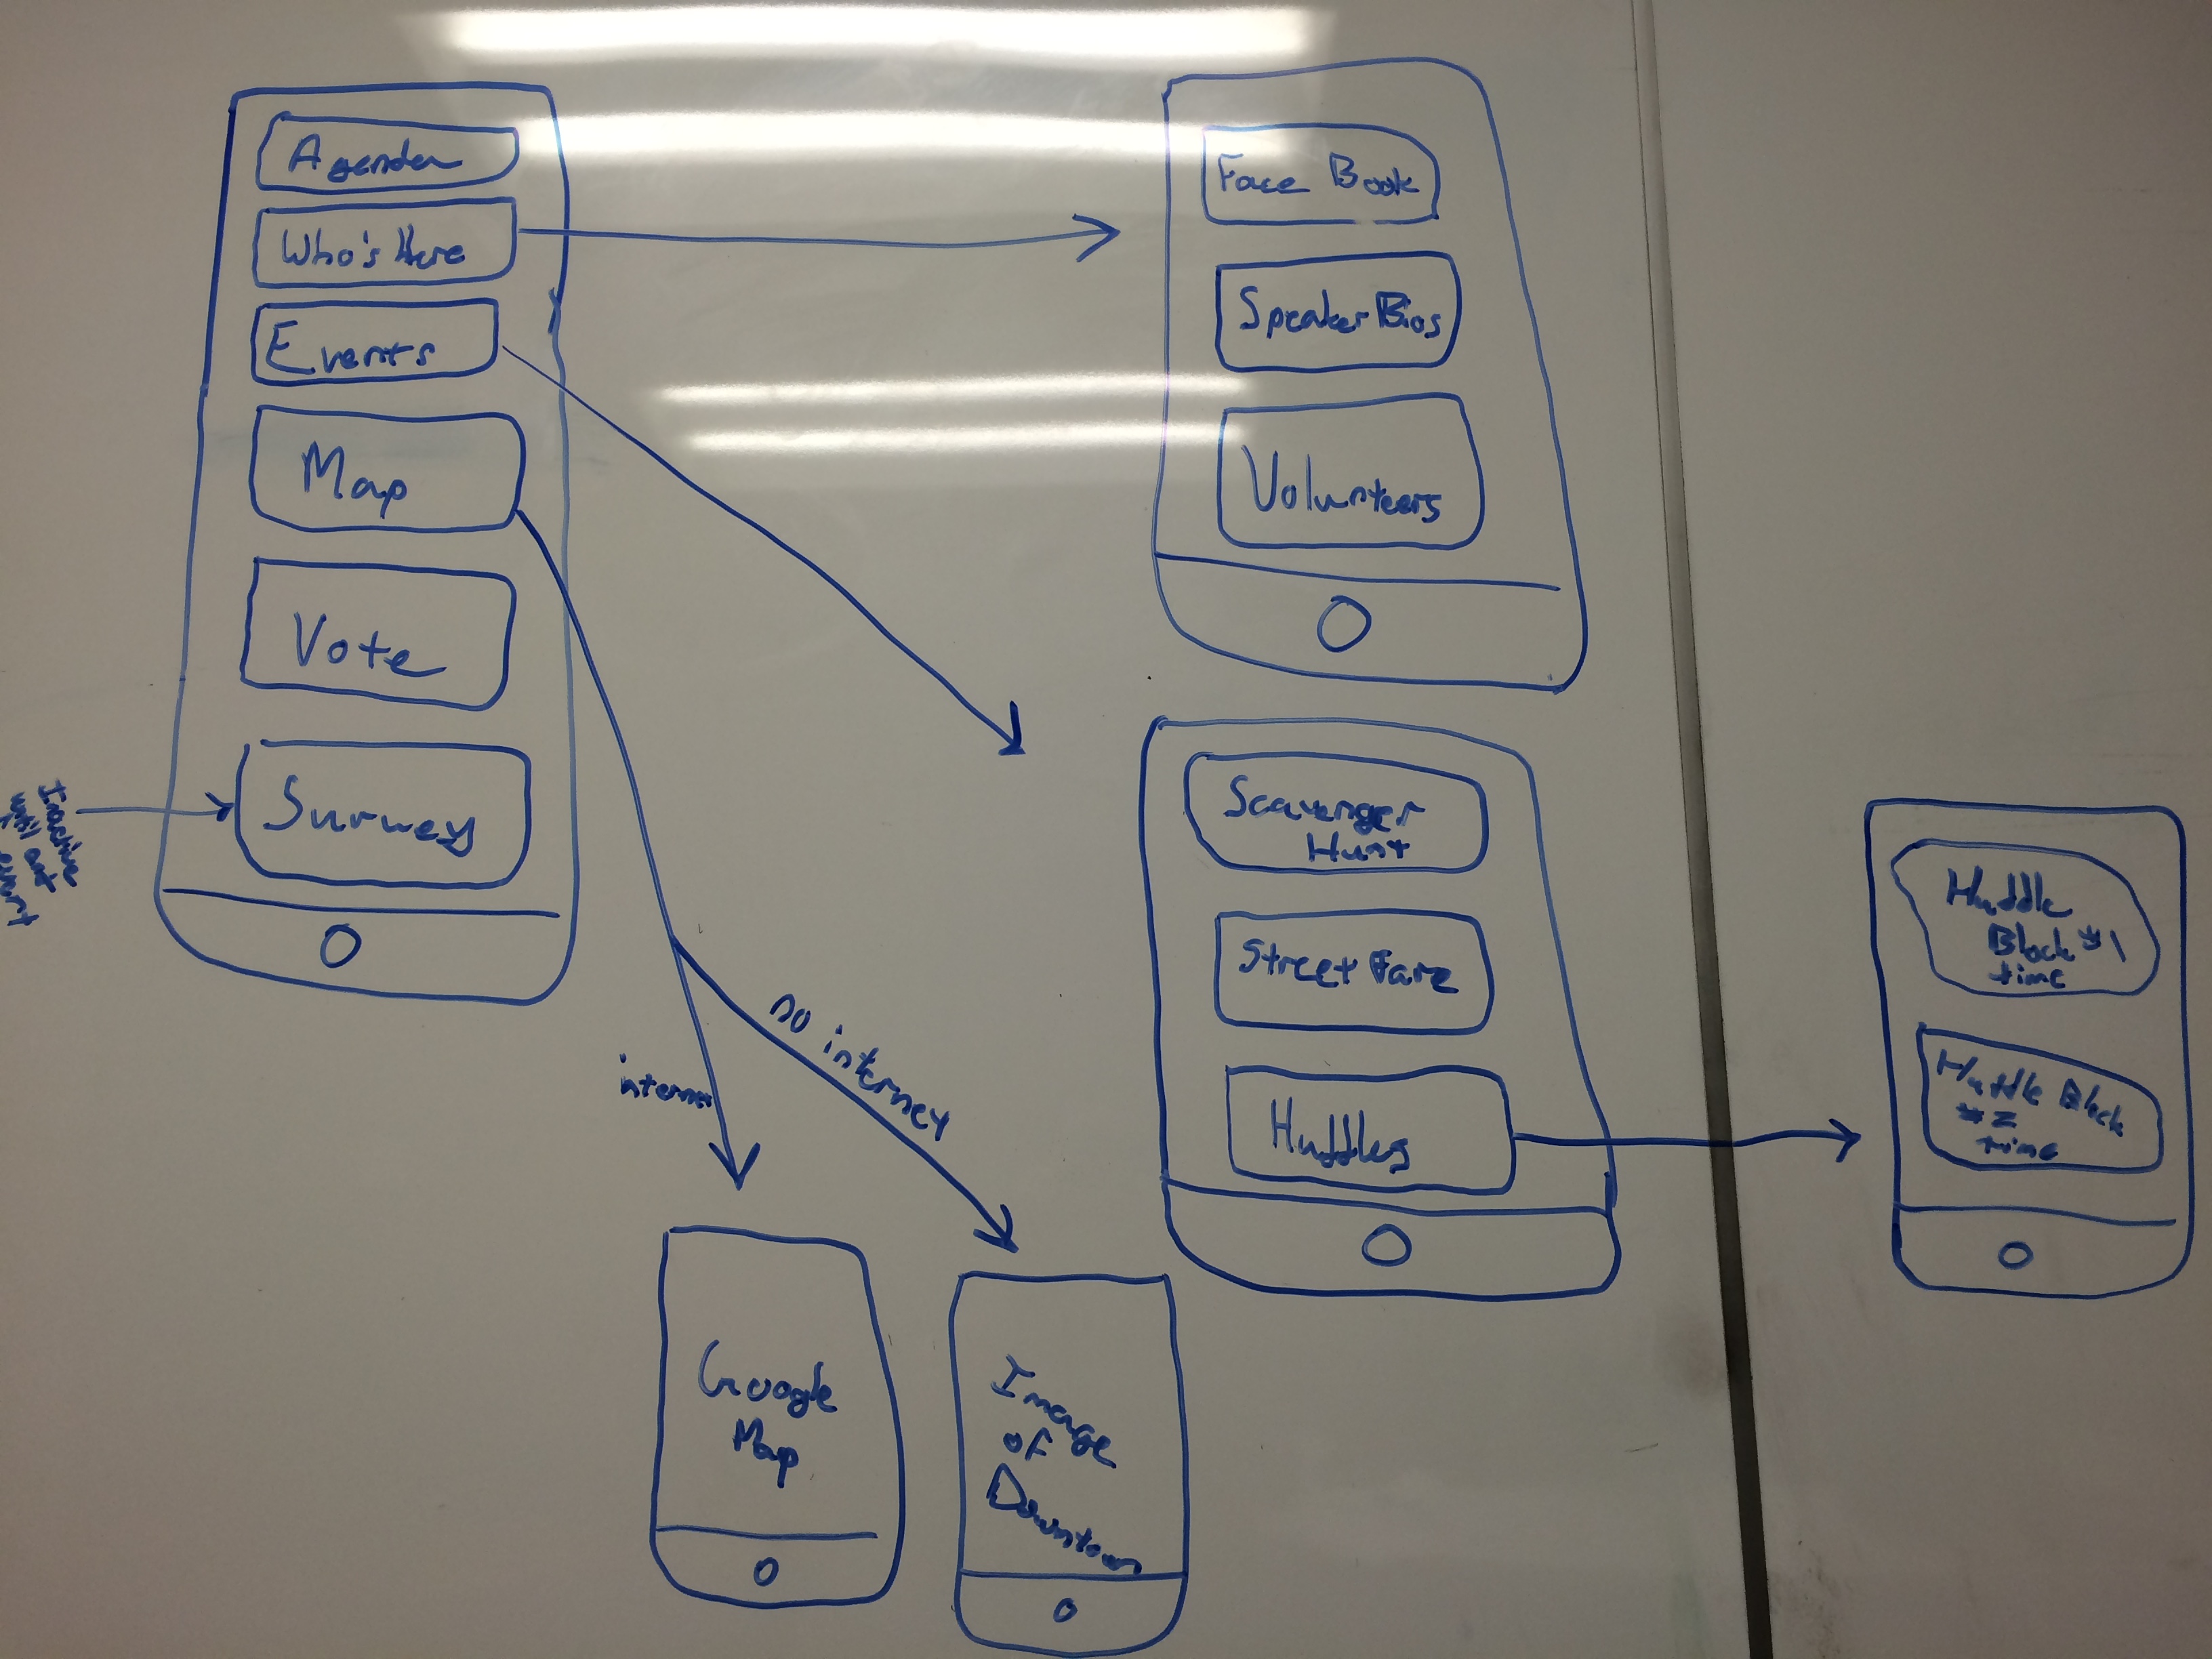 Agenda
Who's Here
Events
Map
Vote
Survey
Inactive
till
event
Face Book
Speaker Bios
Volunteers
Scavenger
Hunt
Street Fare
Huddles
Huddle
Block #1
time
Huddle Block
#2
time
internet
no internet
Google
Map
Image
of
Downtown